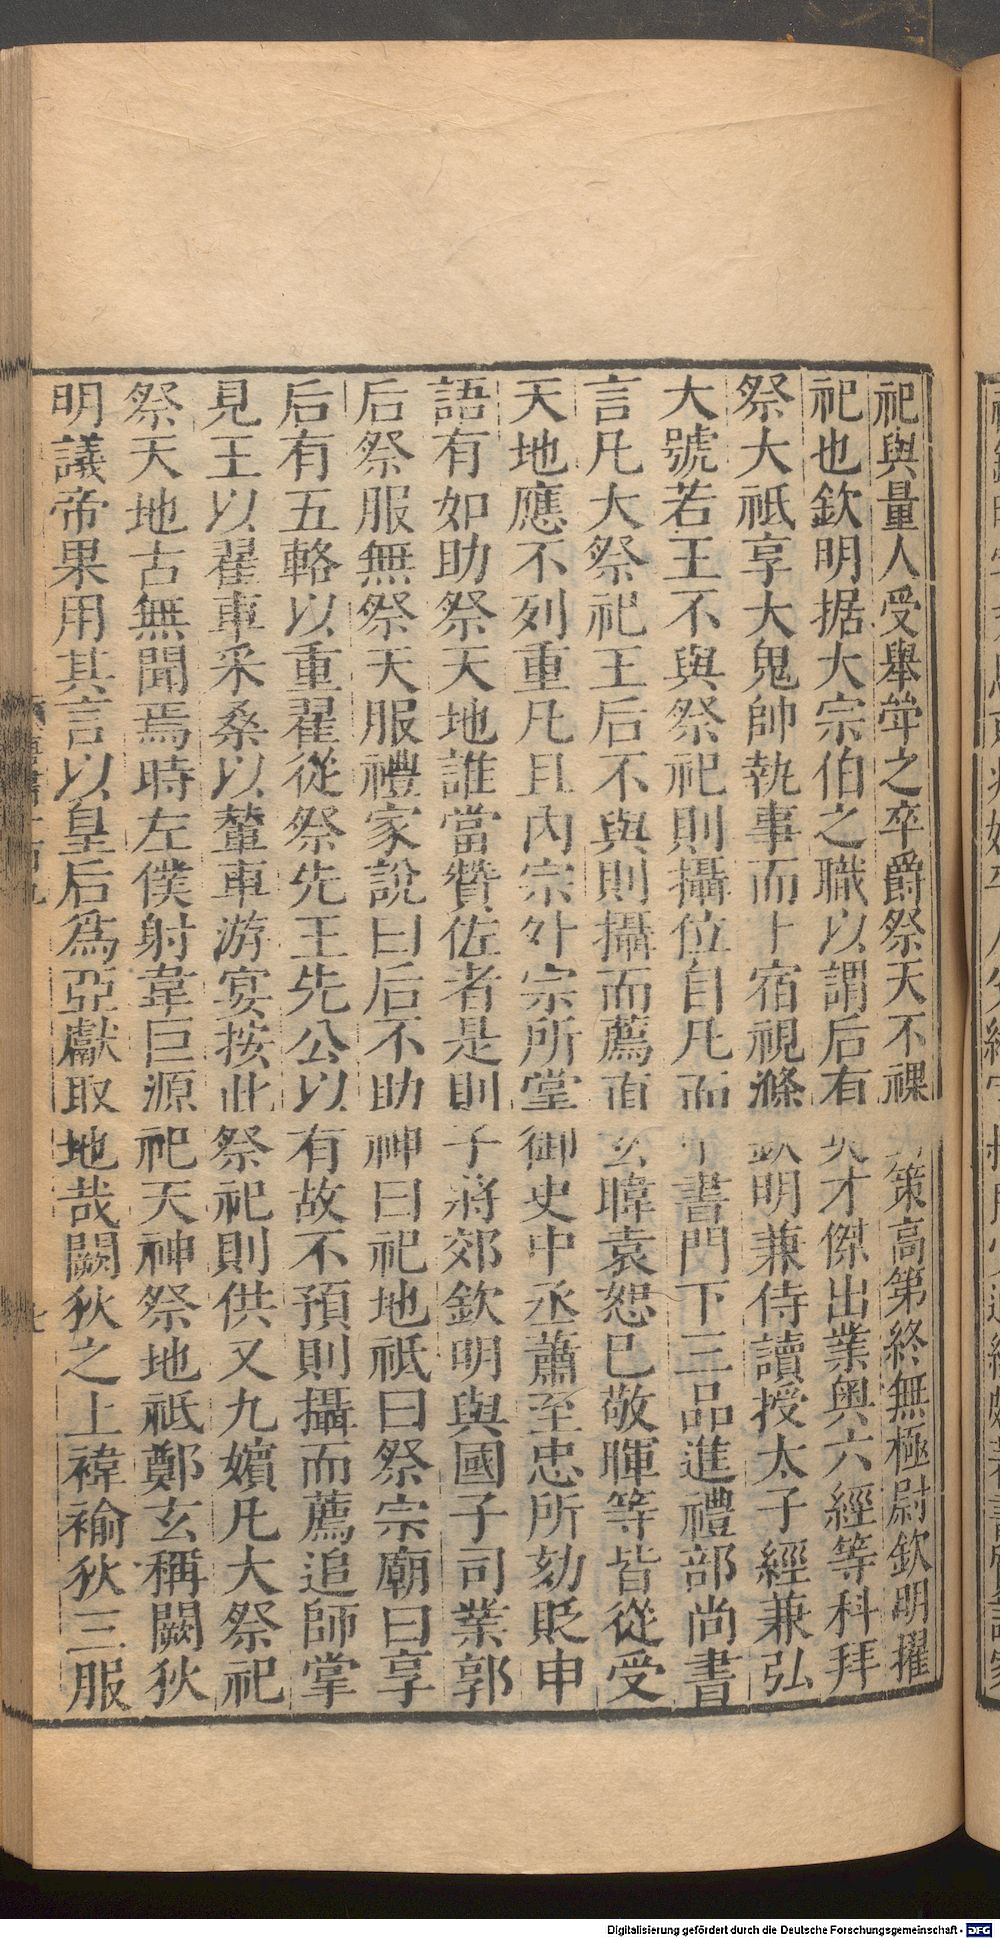 祀與量人受舉斝之卒爵祭天不祼策高第終無極尉欽明擢
祀也欽明据大宗伯之職以謂后有才傑出業奧六經等科拜
祭大祇享大鬼帥執事而卜宿視滌明兼侍讀授太子經兼弘
大號若王不與祭祀則攝位自凡而書門下三品進禮部尚書
言凡大祭祀王后不與則攝而薦豆玄暐袁恕已敬暉等皆從受
天地應不列重凡且內宗外宗所掌御史中丞蕭至忠所劾貶申
語有如助祭天地誰當贊佐者是則子將郊欽明與國子司業郭
后祭服無祭天服禮家說曰后不助神曰祀地祇曰祭宗廟曰享
后有五輅以重翟從祭先王先公以有故不預則攝而薦追師掌
見王以翟車采桑以輦車游宴按此祭祀則供又九嬪凡大祭祀
祭天地古無聞焉時左僕射韋巨源祀天神祭地祇鄭玄稱闕狄
明議帝果用其言以皇后爲亞獻取地哉闕狄之上褘褕狄三服
Digitalisierung gefördert durch die Deutsche Forschungsgemeinschaft - DFG